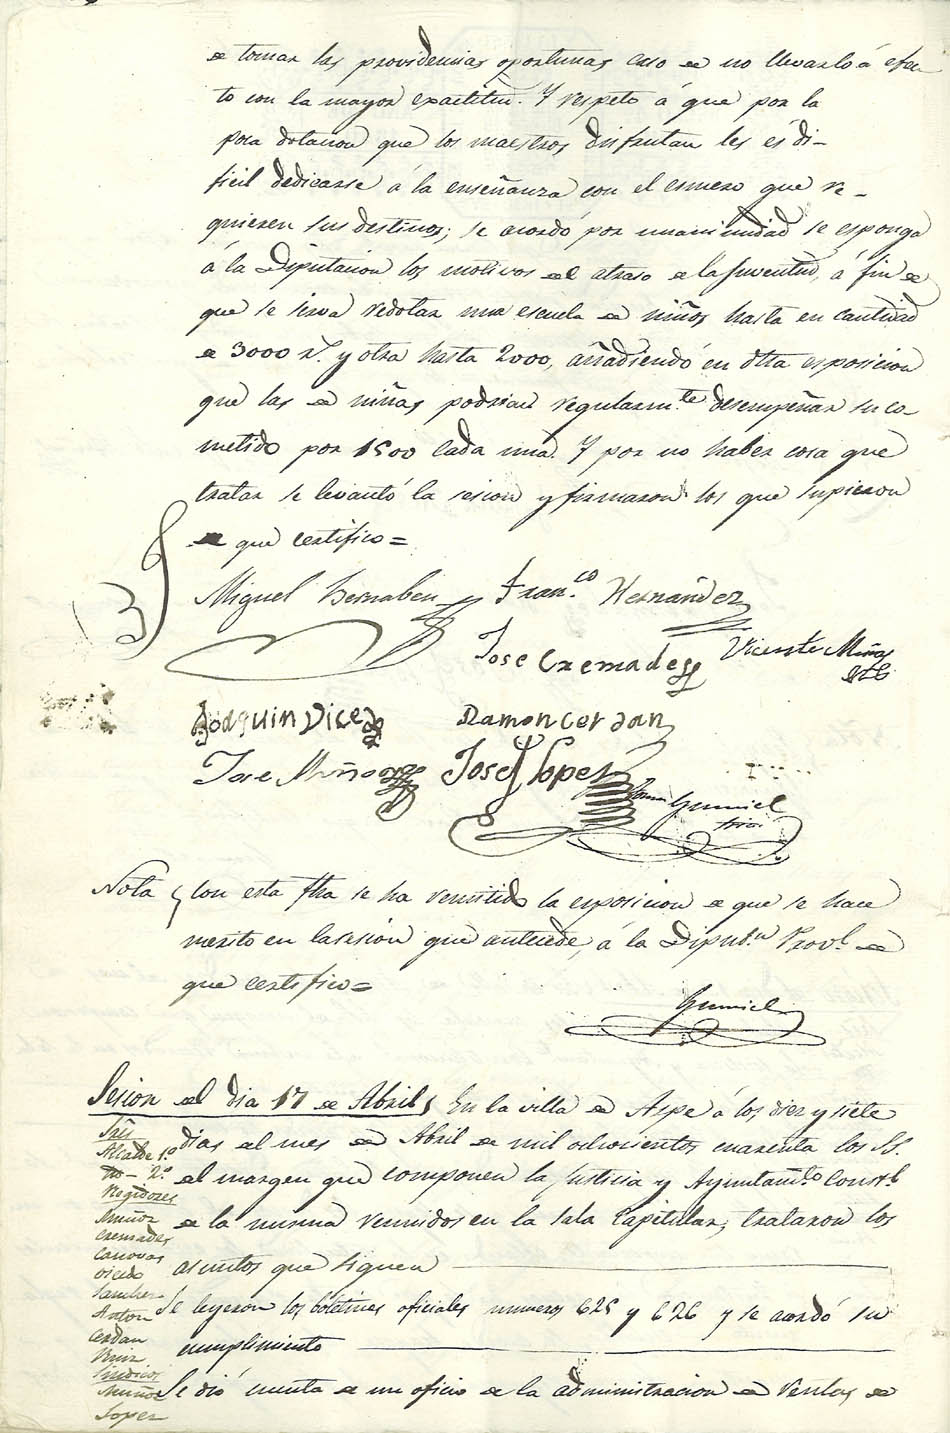 de tomar las providencias oportunas caso de no llevarlo á efec
to con la mayor exactitud. Y respeto á que por la
poca dotacion que los maestros disfrutan les es di-
ficil dedicarse á la enseñanza con el esmero que re-
quieren sus destinos; se acordó por unanimidad se esponga
á la Diputacion los motivos del atraso de la juventud, á fin de
que se sirva redotar una escuela de niños hasta en cantidad
de 3000 rs. y otra hasta 2000, añadiendo en dha esposicion
que las de niñas podrian regularmte desempeñar su co-
metido por 1500 cada una. Y por no haber cosa que
tratar se levantó la sesion y firmaron los que supieron
de que certifico=
Miguel Bernabeu Franco Hernández
Jose Cremades Vicente Muñoz
Joaquin Vicedo Ramon Cerdan
Jose Muñoz Jose Lopez
Gumiel
Srio
Nota Con esta fha se ha remitido la esposicion de que se hace
merito en la sesion que antecede, á la Diputn Provl de
que certifico=
Gumiel
Sesion del dia 17 de Abril En la villa de Aspe á los diez y siete
dias del mes de Abril de mil ochocientos cuarenta los SS.
del margen que componen la Justicia y Ayuntamto Constl
de la misma reunidos en la Sala Capitular, trataron los
asuntos que siguen
Se leyeron los boletines oficiales numeros 625 y 626 y se acordó su
cumplimiento
Se dió cuenta de un oficio de la administracion de Rentas de
Sres
Alcalde 1.º
2.º
Regidores
Muñoz
Cremades
Canovas
Vicedo
Sanchez
Anton
Cerdan
Ruiz
Sindicos
Muñoz
Lopez